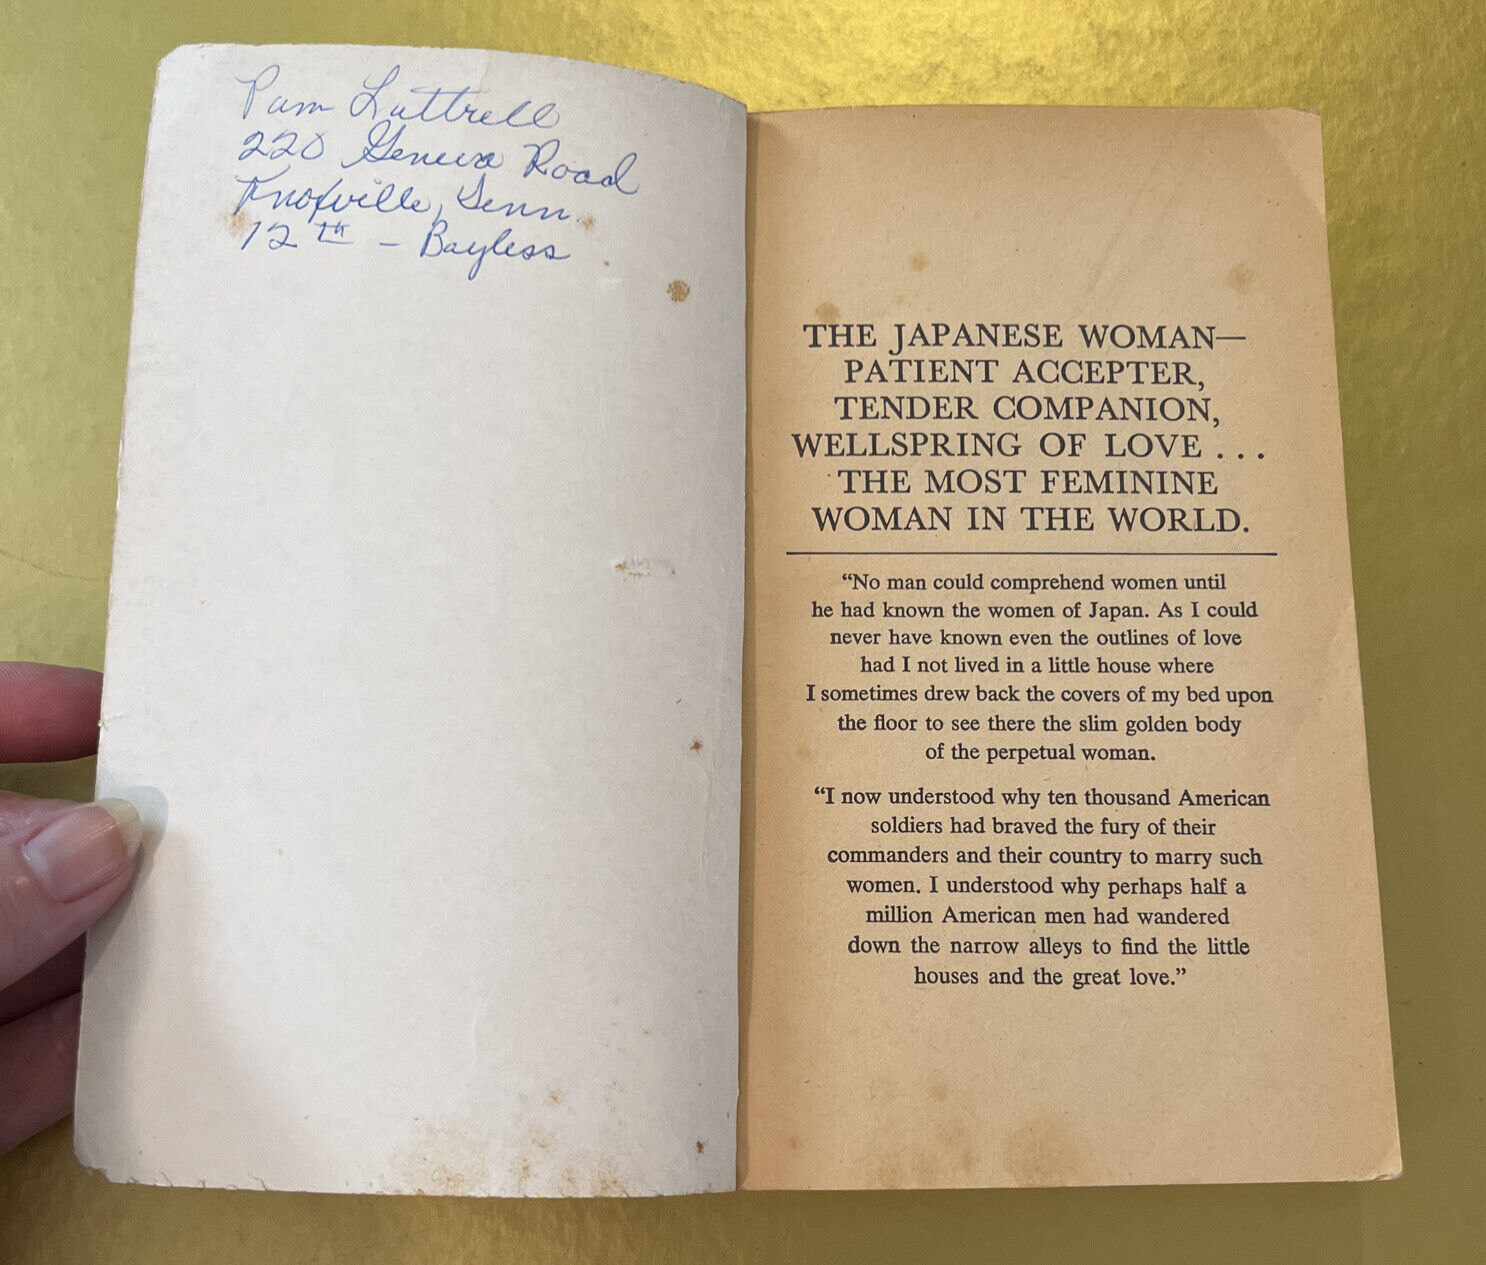 Pam Luttrell
220 Geneva Road
Knoxville, Tenn.
12th - Bayless
THE JAPANESE WOMAN—
PATIENT ACCEPTER,
TENDER COMPANION,
WELLSPRING OF LOVE . . .
THE MOST FEMININE
WOMAN IN THE WORLD.
“No man could comprehend women until
he had known the women of Japan. As I could
never have known even the outlines of love
had I not lived in a little house where
I sometimes drew back the covers of my bed upon
the floor to see there the slim golden body
of the perpetual woman.
“I now understood why ten thousand American
soldiers had braved the fury of their
commanders and their country to marry such
women. I understood why perhaps half a
million American men had wandered
down the narrow alleys to find the little
houses and the great love.”